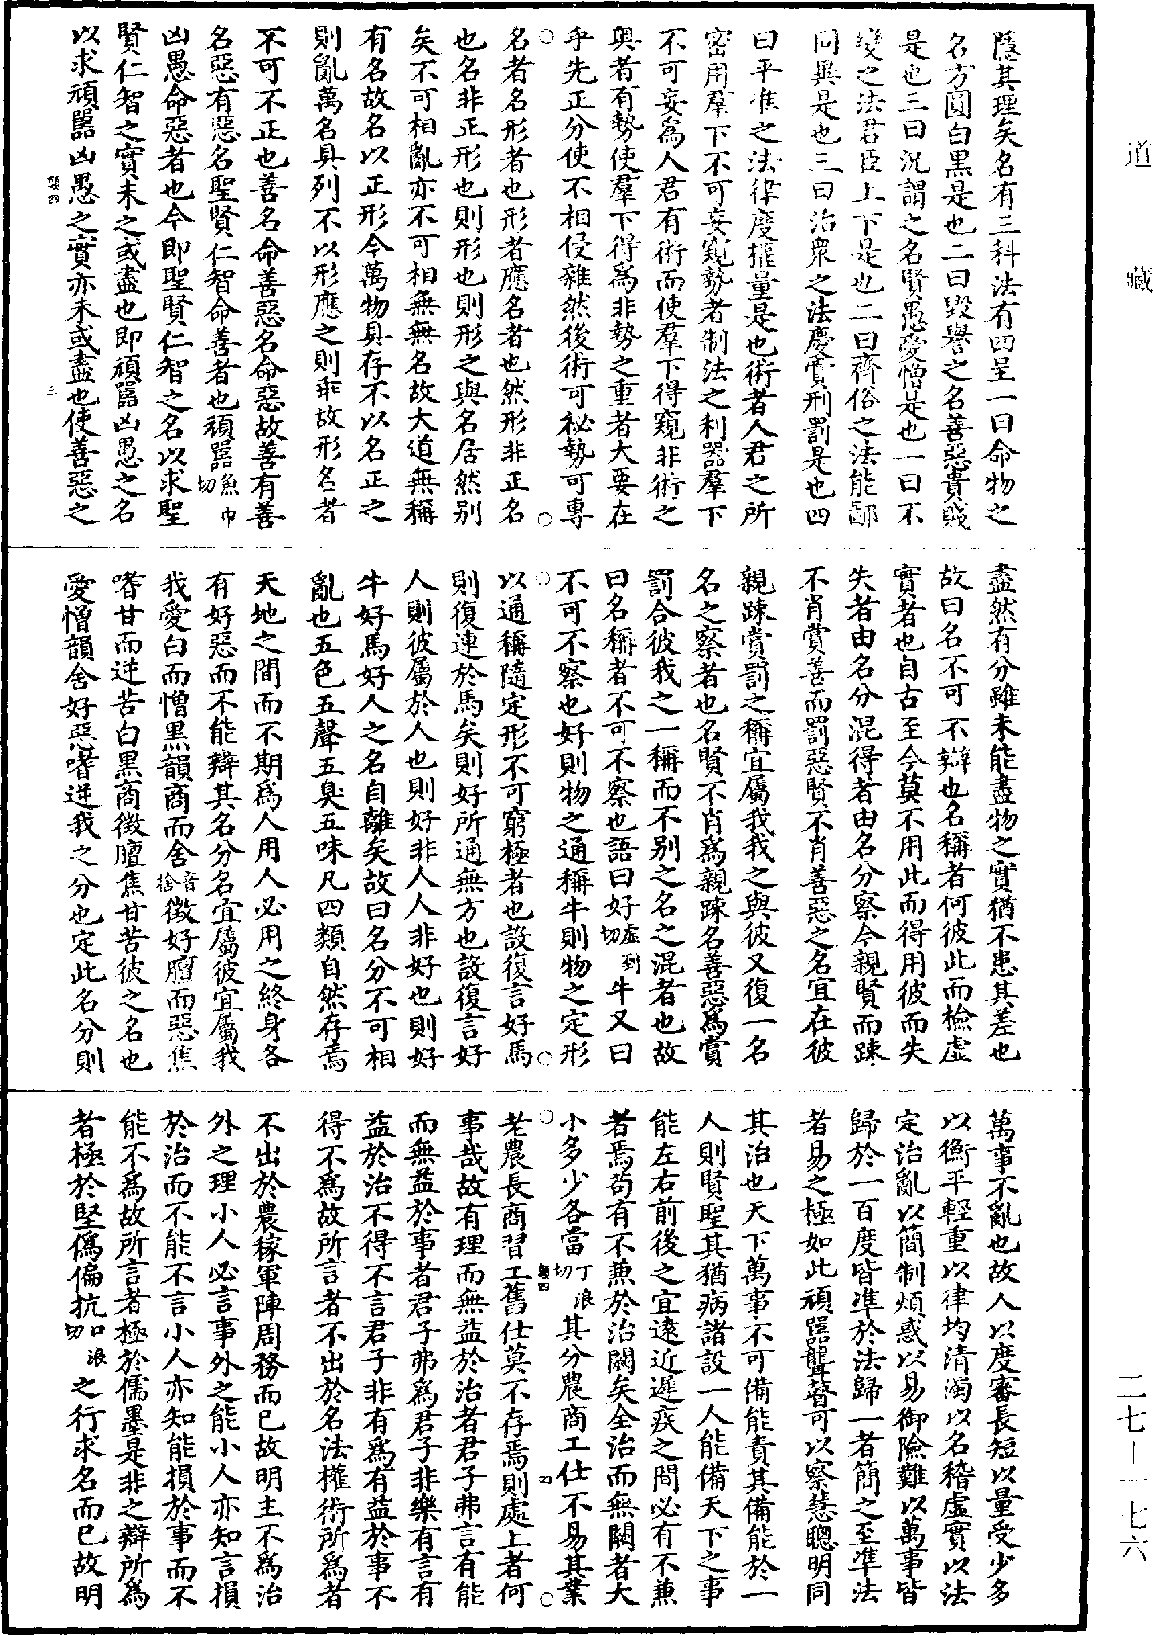 道藏
隱其理矣名有三科法有四呈一曰命物之
名方圓白黑是也二曰毀譽之名善惡貴賤
是也三曰況謂之名賢愚愛憎是也一曰不
變之法君臣上下是也二曰齊俗之法能鄙
同異是也三曰治衆之法慶賞刑罰是也四
曰平准之法律度權量是也術者人君之所
密用羣下不可妄窺勢者制法之利器羣下
不可妄爲人君有術而使羣下得窺非術之
奧者有勢使羣下得爲非勢之重者大要在
乎先正分使不相侵雜然後術可祕勢可專
名者名形者也形者應名者也然形非正名
也名非正形也則形也則形之與名居然別
矣不可相亂亦不可相無無名故大道無稱
有名故名以正形今萬物具存不以名正之
則亂萬名具列不以形應之則乖故形名者
不可不正也善名命善惡名命惡故善有善
名惡有惡名聖賢仁智命善者也頑嚚魚巾切
凶愚命惡者也今即聖賢仁智之名以求聖
賢仁智之實未之或盡也即頑嚚凶愚之名
以求頑嚚凶愚之實亦未或盡也使善惡之
顛四
三
盡然有分雖未能盡物之實猶不患其差也
故曰名不可不辯也名稱者何彼此而檢虛
實者也自古至今莫不用此而得用彼而失
失者由名分混得者由名分察今親賢而踈
不肖賞善而罰惡賢不肖善惡之名宜在彼
親踈賞罰之稱宜屬我我之與彼又復一名
名之察者也名賢不肖爲親踈名善惡爲賞
罰合彼我之一稱而不别之名之混者也故
曰名稱者不可不察也語曰好虛到切牛又曰
不可不察也好則物之通稱牛則物之定形
以通稱隨定形不可窮極者也設復言好馬
則復連於馬矣則好所通無方也設復言好
人則彼屬於人也則好非人人非好也則好
牛好馬好人之名自離矣故曰名分不可相
亂也五色五聲五臭五味凡四類自然存焉
天地之間而不期爲人用人必用之終身各
有好惡而不能辯其名分名宜屬彼宜屬我
我愛白而憎黑韻商而舍音捨徵好膻而惡焦
嗜甘而逆苦白黑商徵膻焦甘苦彼之名也
愛憎韻舍好惡嗜逆我之分也定此名分則
萬事不亂也故人以度審長短以量受少多
以衡平輕重以律均清濁以名稽虛實以法
定治亂以簡制煩惑以易御險難以萬事皆
歸於一百度皆準於法歸一者簡之至準法
者易之極如此頑嚚聾瞽可以察慧聰明同
其治也天下萬事不可備能責其備能於一
人則賢聖其猶病諸設一人能備天下之事
能左右前後之宜遠近遲疾之間必有不兼
者焉苟有不兼於治闕矣全治而無闕者大
小多少各當丁浪切其分農商工仕不易其業
老農長商習工舊仕莫不存焉則處上者何
事哉故有理而無益於治者君子弗言有能
而無益於事者君子弗爲君子非樂有言有
益於治不得不言君子非有爲有益於事不
得不爲故所言者不出於名法權術所爲者
不出於農稼軍陣周務而已故明主不爲治
外之理小人必言事外之能小人亦知言損
於治而不能不言小人亦知能損於事而不
能不爲故所言者極於儒墨是非之辯所爲
者極於堅僞偏抗口浪切之行求名而已故明
顛四
四
二七—一七六